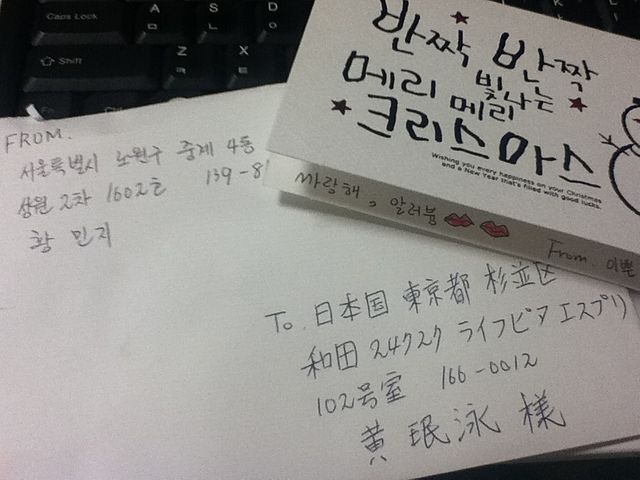 Caps Lock
A
ㅁ
S
ㄴ
D
ㅇ
Shift
Z
ㅋ
X
ㅌ
반짝 반짝
빛나는
메리 메리
크리스마스
Wishing you every happiness on your Christmas
and a New Year that's filled with good lucks.
싸랑해, 알러븀
From. 이쁜
FROM.
서울특별시 노원구 중계 4동
상원 2차 1602호 139-8
황 민지
To. 日本国 東京都 杉並区
和田 2472ク ライフピア エスプリ
102号室 166-0012
黄 珉泳 様